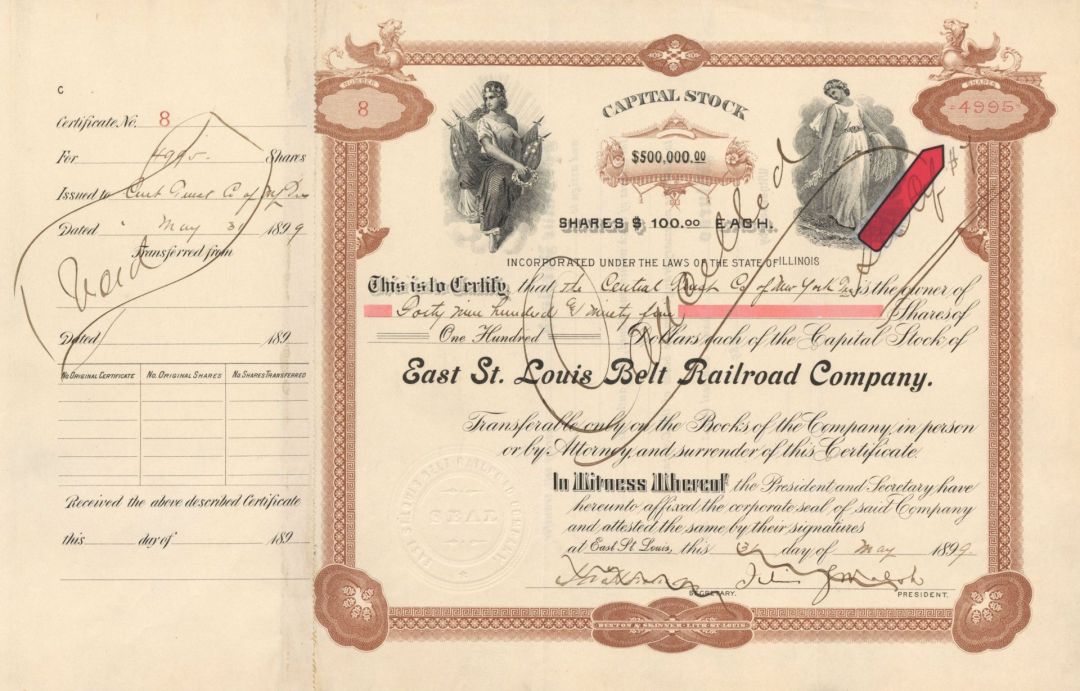 C
Certificate, No. 8
For 4995 Shares
Issued to Cent Trust Co of NY
Dated May 31 1899
Transferred from
Void
Dated 189
No. Original Certificate No. Original Shares No. Shares Transferred
Received the above described Certificate
this day of 189
NUMBER
8
CAPITAL STOCK
$500,000.00
SHARES $ 100.00 EACH.
SHARES
4995
INCORPORATED UNDER THE LAWS OF THE STATE OF ILLINOIS
This is to Certify that The Central Trust Co of New York is the owner of
Forty nine hundred & ninety five Shares of
One Hundred Dollars each of the Capital Stock of
East St. Louis Belt Railroad Company.
Transferable only on the Books of the Company, in person
or by Attorney and surrender of this Certificate.
In Witness Whereof, the President and Secretary have
hereunto affixed the corporate seal of said Company
and attested the same by their signatures
at East St. Louis, this 31 day of May 1899.
SECRETARY. PRESIDENT.
Cancelled
SEAL
BUXTON & SKINNER LITH. ST. LOUIS